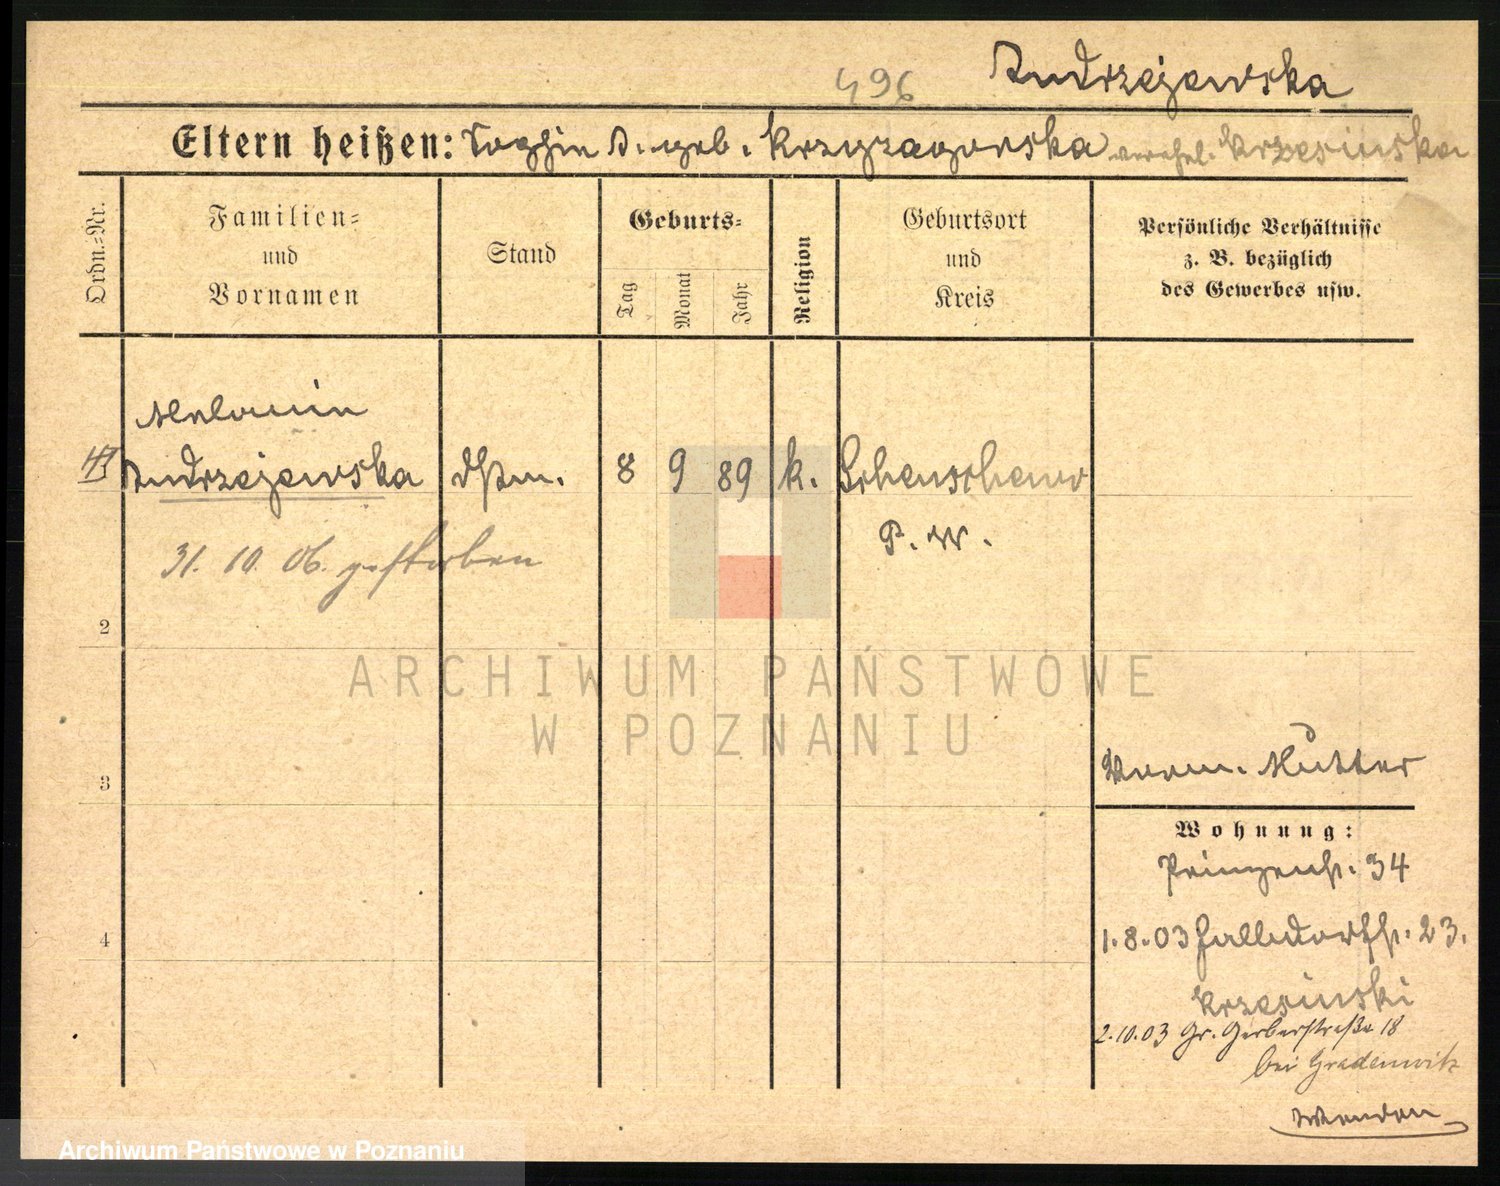 496 Andrzejewska
Eltern heißen: Sophie A. geb. Krzyzagorska verehel. Krzesinska
Ordn.-Nr.
Familien-
und
Vornamen
Stand
Geburts-
Tag
Monat
Jahr
Religion
Geburtsort
und
Kreis
Persönliche Verhältnisse
z. B. bezüglich
des Gewerbes usw.
Melanie
Andrzejewska
8 9 89 k.
P. W.
31. 10. 06. gestorben
2
3
4
Mutter
Wohnung:
Prinzenstr. 34
1.8.03 Halldorfstr. 23.
Krzesinski
2.10.03 Gr. Gerberstraße 18
bei Gradenwitz
ARCHIWUM PAŃSTWOWE
W POZNANIU
Archiwum Państwowe w Poznaniu